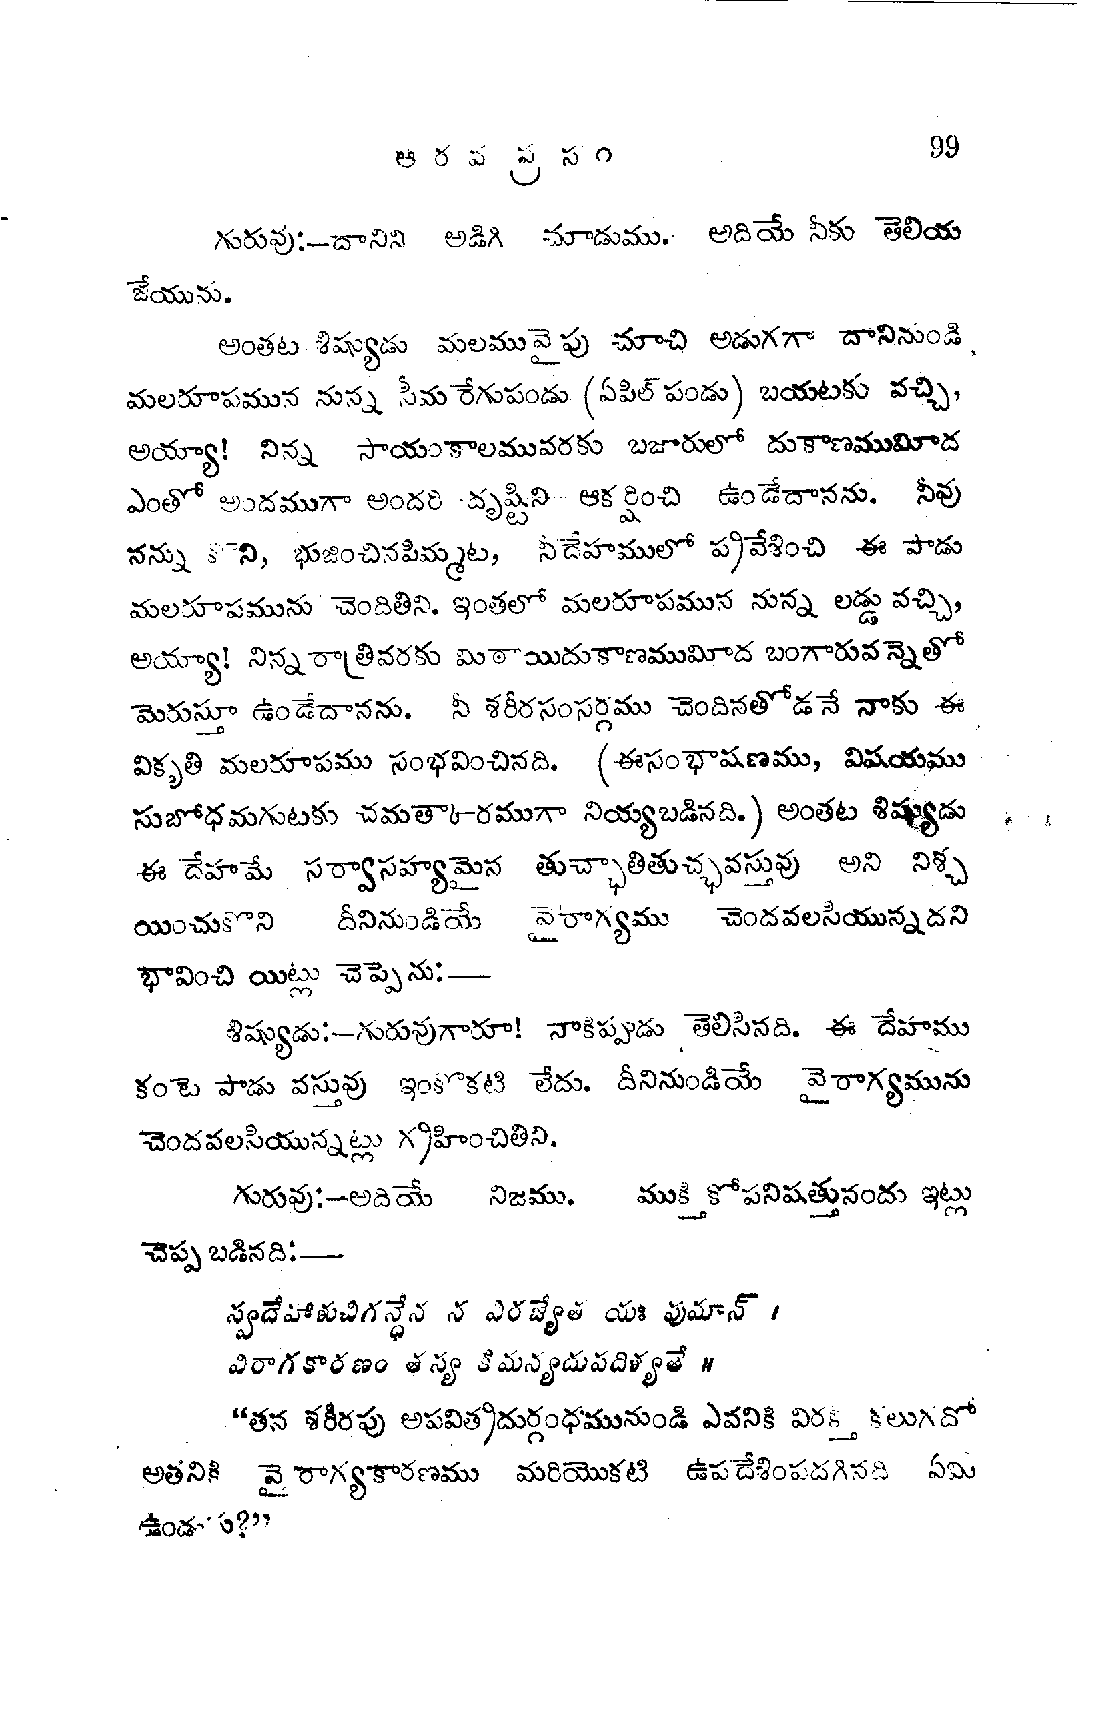 99
గురువు:—దానిని అడిగి చూడుము. అదియే నీకు తెలియ
జేయును.
అంతట శిష్యుడు మలమువైపు చూచి అడుగగా దానినుండి
మలరూపమున నున్న సీమ రేగుపండు (ఏపిల్ పండు) బయటకు వచ్చి,
అయ్యా! నిన్న సాయంకాలమువరకు బజారులో దుకాణముమీద
ఎంతో అందముగా అందరి దృష్టిని ఆకర్షించి ఉండేదానను. నీవు
నన్ను కొని, భుజించినపిమ్మట, నీదేహములో ప్రవేశించి ఈ పాడు
మలరూపమును చెందితిని. ఇంతలో మలరూపమున నున్న లడ్డు వచ్చి,
అయ్యా! నిన్న రాత్రివరకు మిఠాయిదుకాణముమీద బంగారువన్నెతో
మెరుస్తూ ఉండేదానను. నీ శరీరసంసర్గము చెందినతోడనే నాకు ఈ
వికృతి మలరూపము సంభవించినది. (ఈసంభాషణము, విషయము
సుబోధమగుటకు చమత్కారముగా నియ్యబడినది.) అంతట శిష్యుడు
ఈ దేహమే సర్వాసహ్యమైన తుచ్ఛాతితుచ్ఛవస్తువు అని నిశ్చ
యించుకొని దీనినుండియే వైరాగ్యము చెందవలసియున్నదని
భావించి యిట్లు చెప్పెను:—
శిష్యుడు:—గురువుగారూ! నాకిప్పుడు తెలిసినది. ఈ దేహము
కంటె పాడు వస్తువు ఇంకొకటి లేదు. దీనినుండియే వైరాగ్యమును
చెందవలసియున్నట్లు గ్రహించితిని.
గురువు:—అదియే నిజము. ముక్తికోపనిషత్తునందు ఇట్లు
చెప్పబడినది:—
స్వదేహాశుచిగన్ధేన న విరజ్యేత యః పుమాన్ ।
విరాగకారణం తస్య కిమన్యదుపదిశ్యతే ॥
“తన శరీరపు అపవిత్రదుర్గంధమునుండి ఎవనికి విరక్తి కలుగదో
అతనికి వైరాగ్యకారణము మరియొకటి ఉపదేశింపదగినది ఏమి